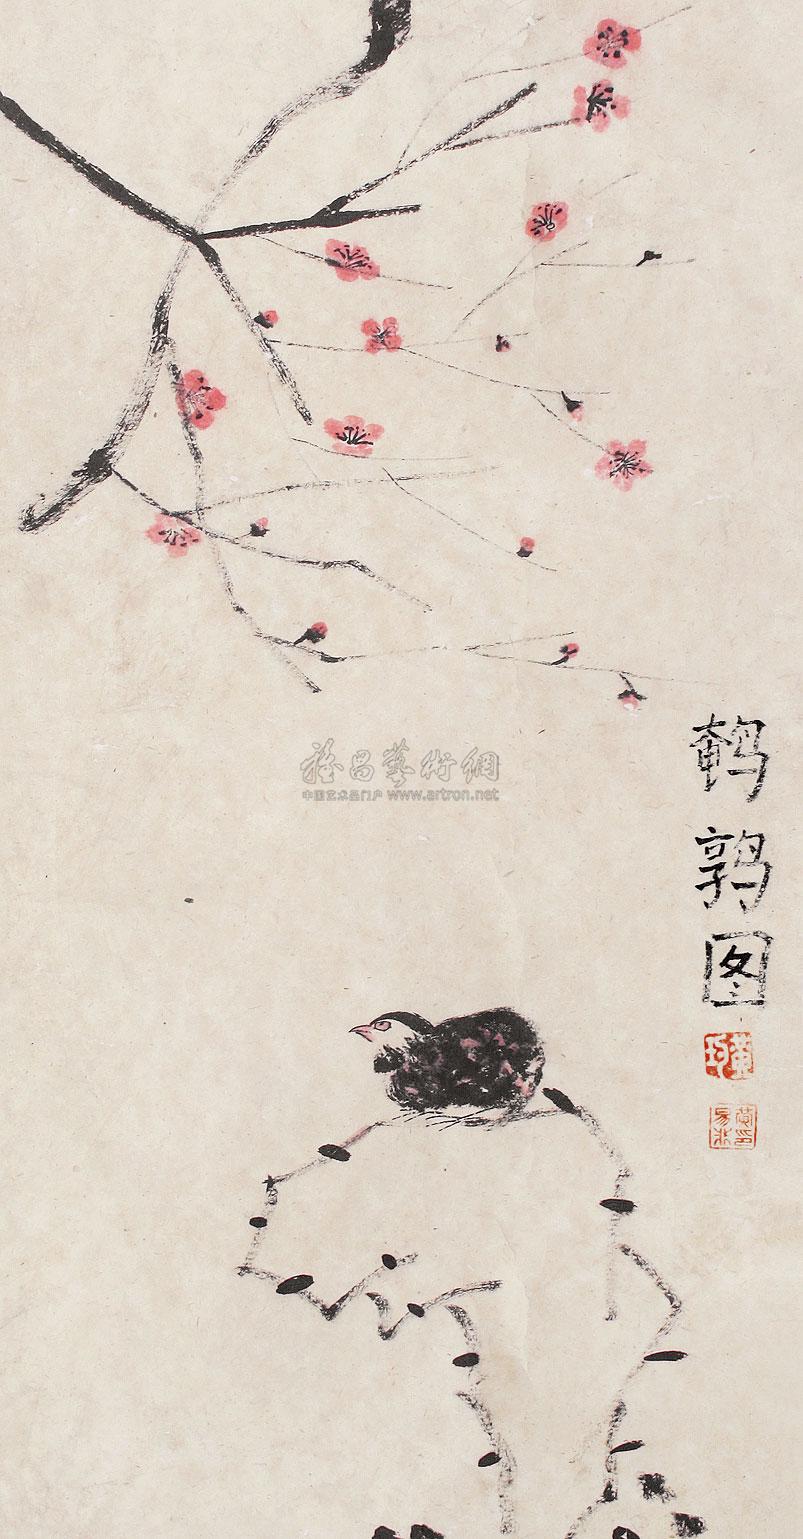 鹌
鹑
图
雅昌藝術網
中国艺术品门户 www.artron.net